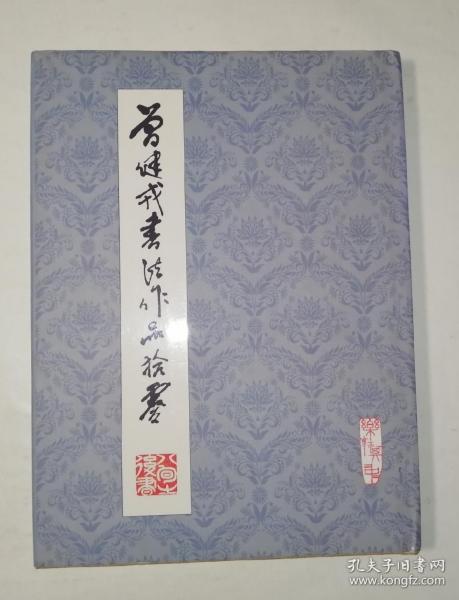 曾健戎书法作品拾零
八旬生
后书
孔夫子旧书网
www.kongfz.com